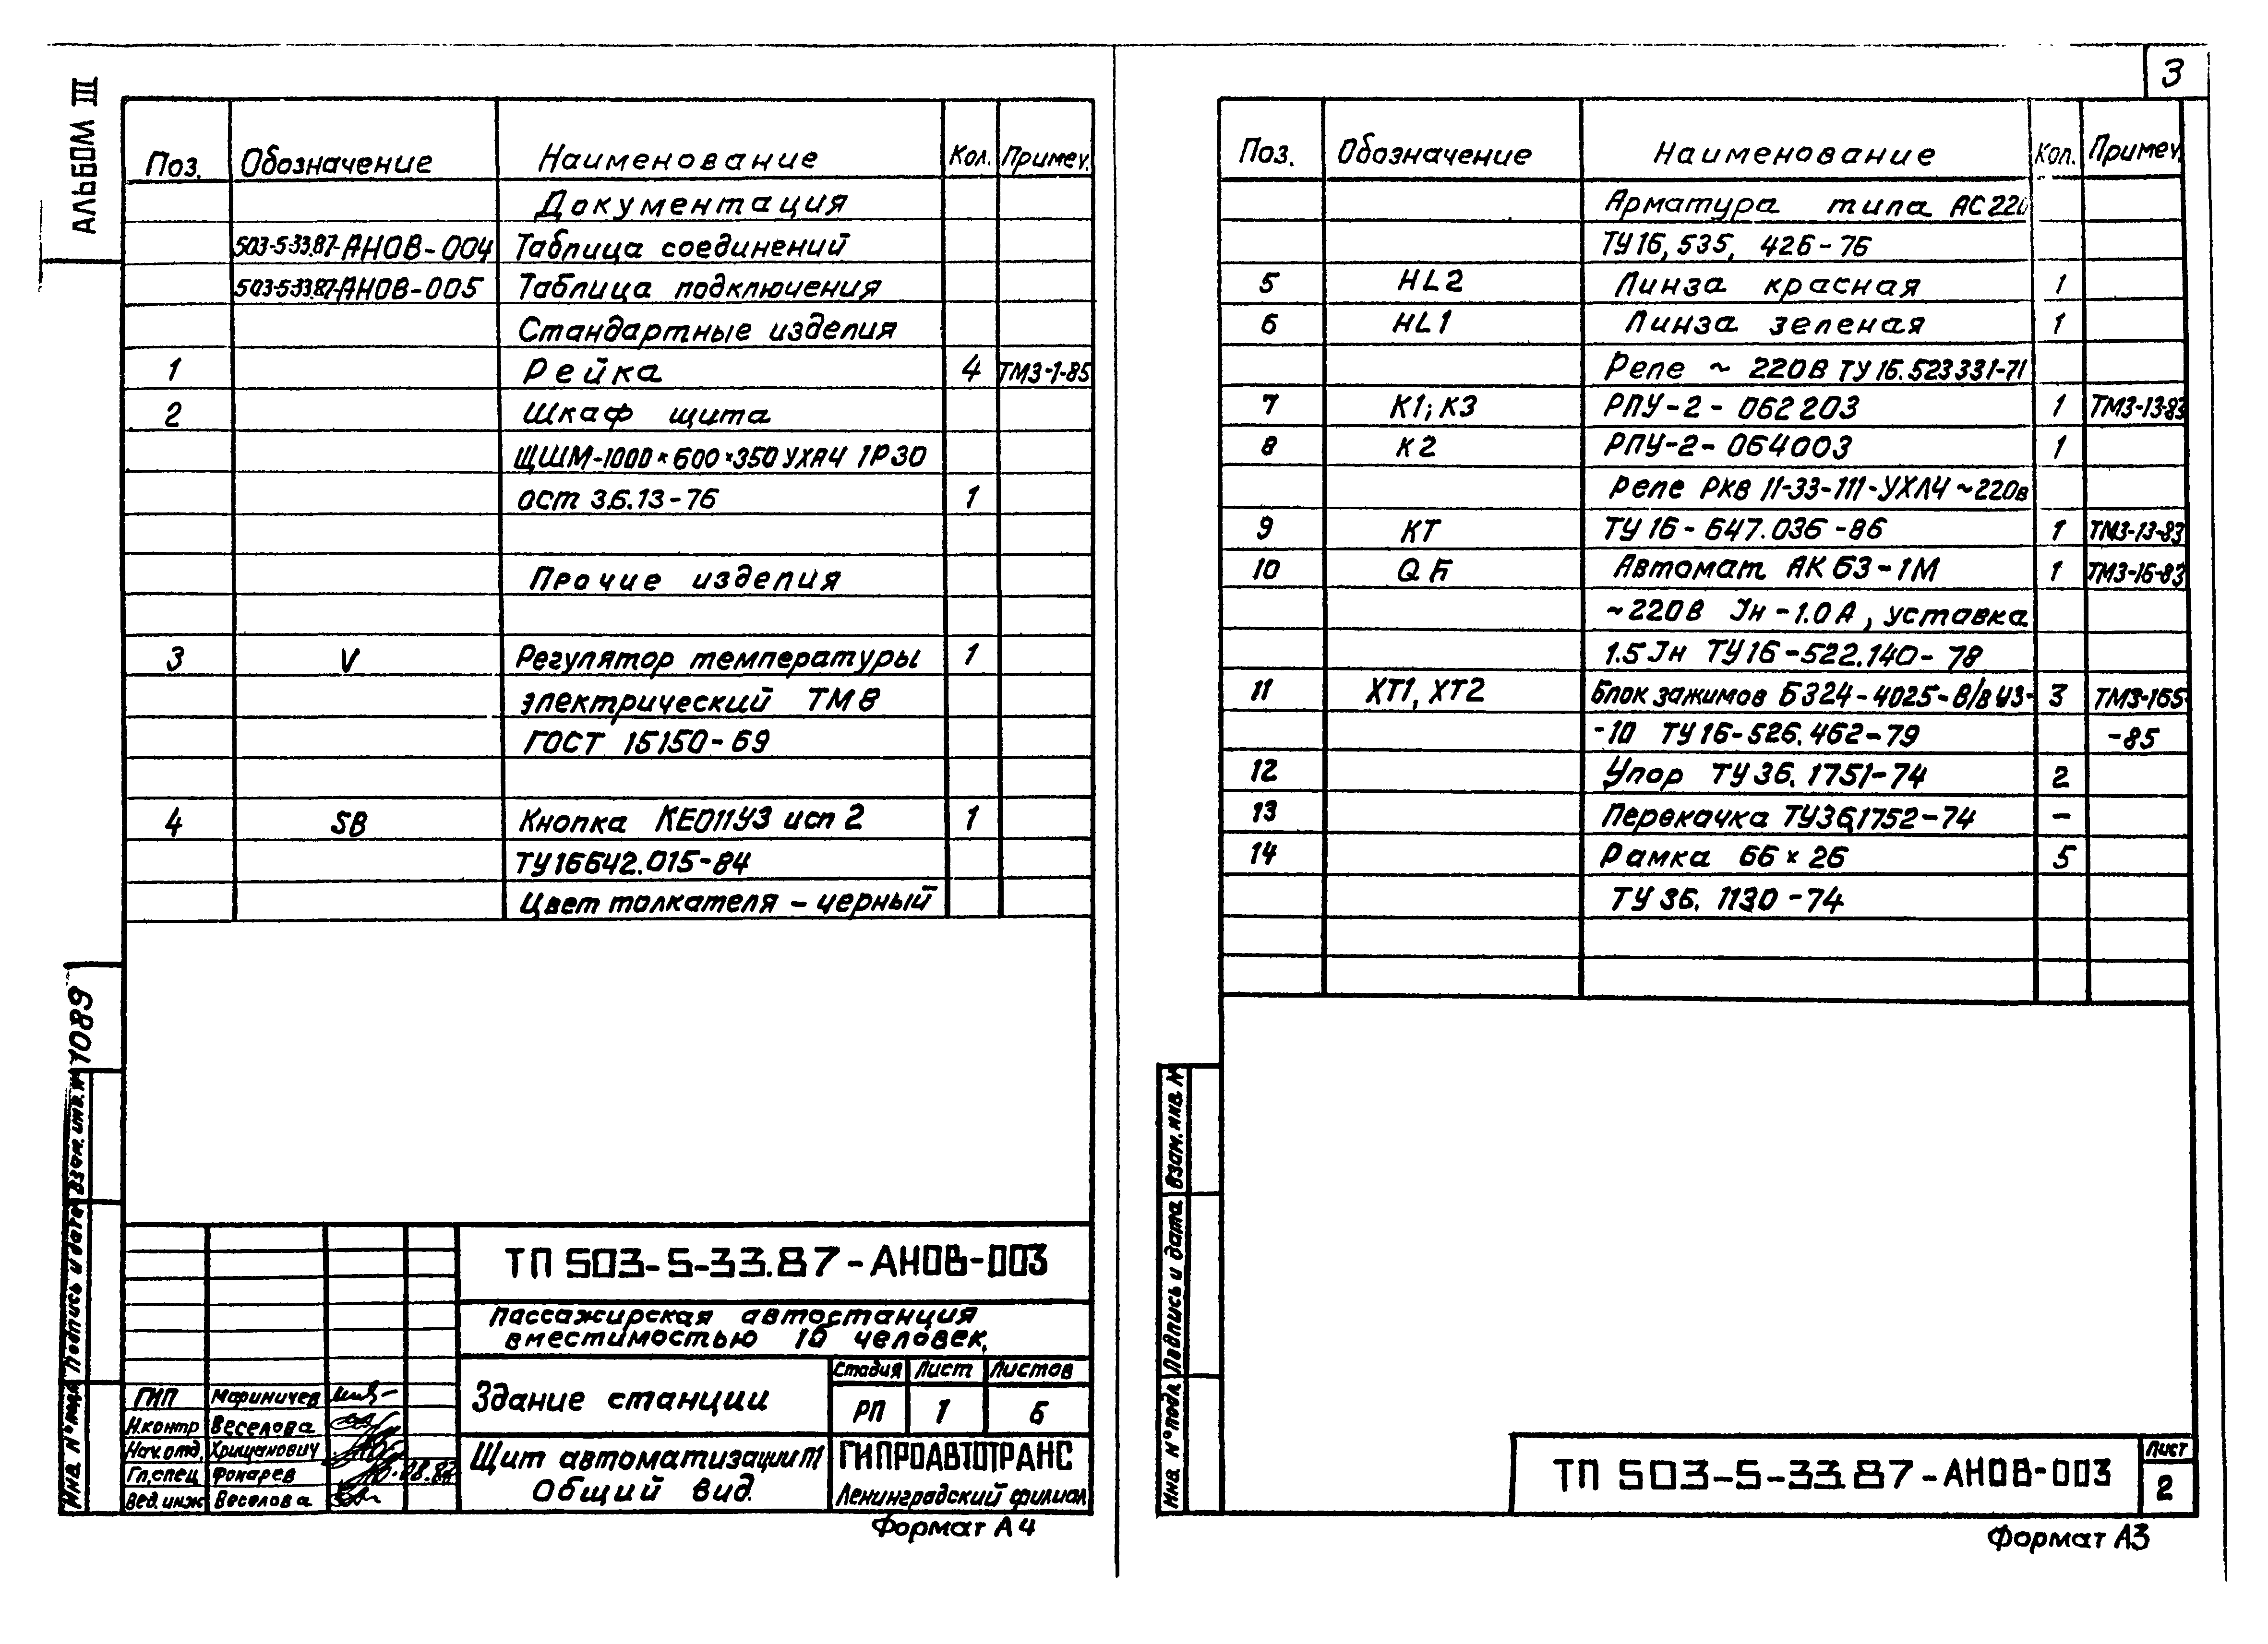 Альбом III
Поз. Обозначение Наименование Кол. Примеч.
Документация
503-5-33.87-АНОВ-004 Таблица соединений
503-5-33.87-АНОВ-005 Таблица подключения
Стандартные изделия
1 Рейка 4 ТМ3-1-85
2 Шкаф щита
ЩШМ-1000×600×350 УХЛ4 1Р30
ост 36.13-76 1
Прочие изделия
3 V Регулятор температуры 1
электрический ТМ8
ГОСТ 15150-69
4 SB Кнопка КЕ011У3 исп 2 1
ТУ16642.015-84
Цвет толкателя - черный
1089
Взам. инв. №
Подпись и дата
Инв. № подл.
ТП 503-5-33.87-АНОВ-003
Пассажирская автостанция
вместимостью 10 человек.
Здание станции
Стадия Лист Листов
РП 1 6
Щит автоматизации П1
Общий вид.
ГИПРОАВТОТРАНС
Ленинградский филиал
ГИП Мариничев
Н.контр Веселова
Нач.отд. Хрищанович
Гл.спец Фокарев
Вед.инж Веселова
Формат А4
3
Поз. Обозначение Наименование Кол. Примеч.
Арматура типа АС220
ТУ16, 535, 426-76
5 HL2 Линза красная 1
6 HL1 Линза зеленая 1
Реле ~ 220В ТУ 16.523331-71
7 К1; К3 РПУ-2-062203 1 ТМ3-13-83
8 К2 РПУ-2-064003 1
реле РКВ 11-33-111-УХЛ4 ~220в
9 КТ ТУ 16-647.036-86 1 ТМ3-13-83
10 QF Автомат АК63-1М 1 ТМ3-16-83
~220В Iн-1.0А, уставка
1.5Iн ТУ16-522.140-78
11 ХТ1, ХТ2 Блок зажимов Б324-4025-В/ВУ3- 3 ТМ3-165-
-10 ТУ16-526.462-79 -85
12 Упор ТУ36.1751-74 2
13 Перекачка ТУ36,1752-74 –
14 Рамка 66×26 5
ТУ 36.1130-74
Взам. инв. №
Подпись и дата
Инв. № подл.
ТП 503-5-33.87-АНОВ-003
Лист
2
Формат А3